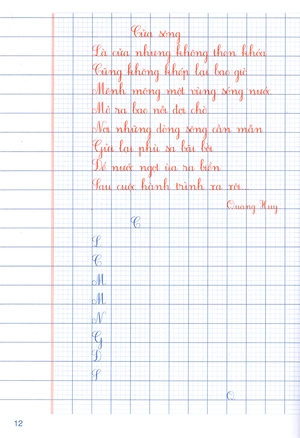 Cửa sông
Là cửa nhưng không then khóa
Cũng không khép lại bao giờ
Mênh mông một vùng sóng nước
Mở ra bao nỗi đợi chờ
Nơi những dòng sông cần mẫn
Gửi lại phù sa bãi bồi
Để nước ngọt ùa ra biển
Sau cuộc hành trình xa xôi...
Quang Huy
C
L
C
M
M
N
G
Đ
S
Q
12